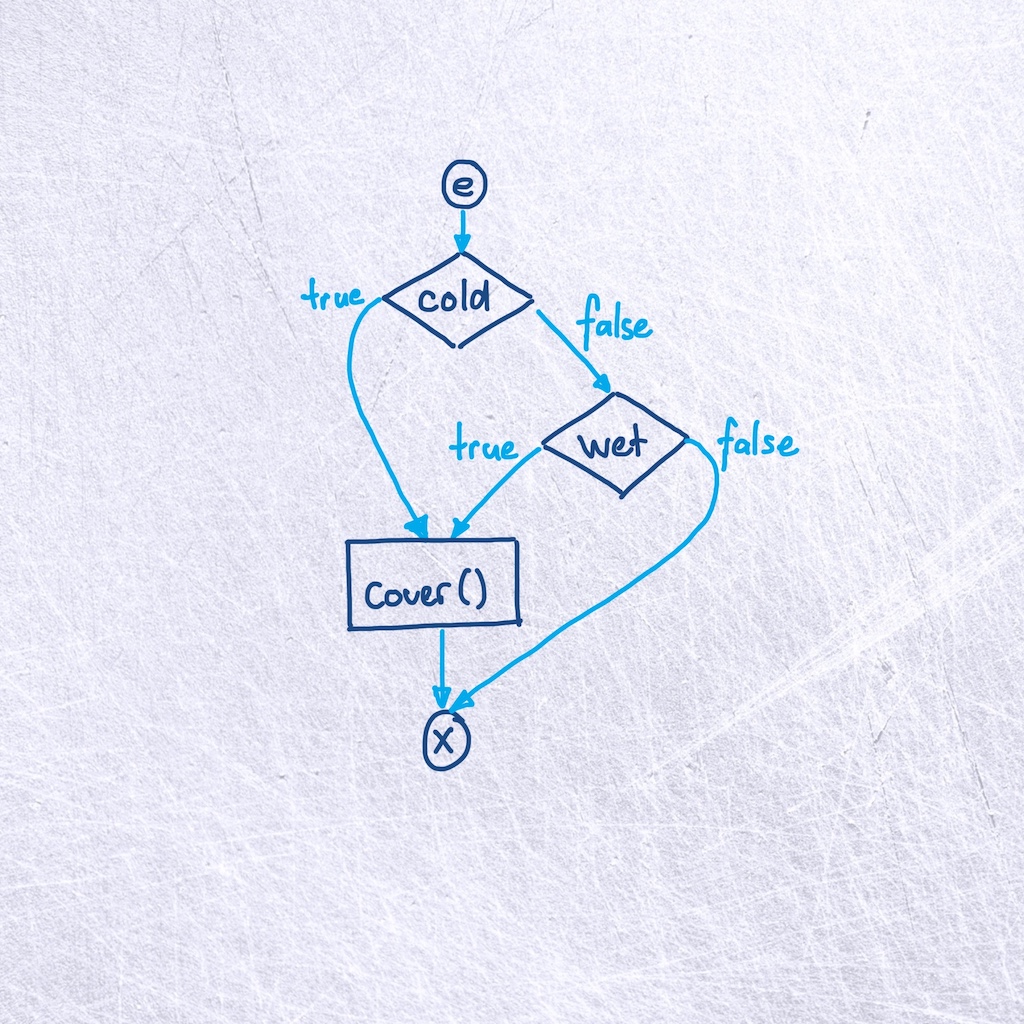 e
true
cold
false
true
wet
false
cover()
X